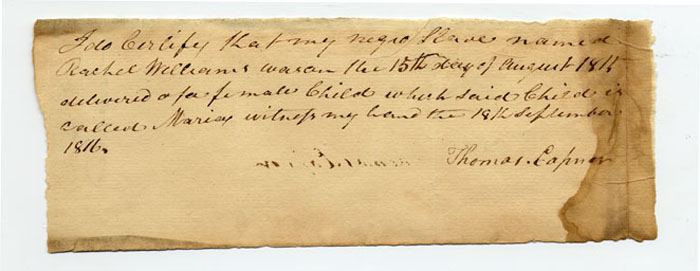 I do Certify that my negro Slave named
Rachel Williams was on the 15th day of August 1816
delivered of a female Child which said Child is
called Maria witness my hand the 18th September
1816.
Thomas Capner